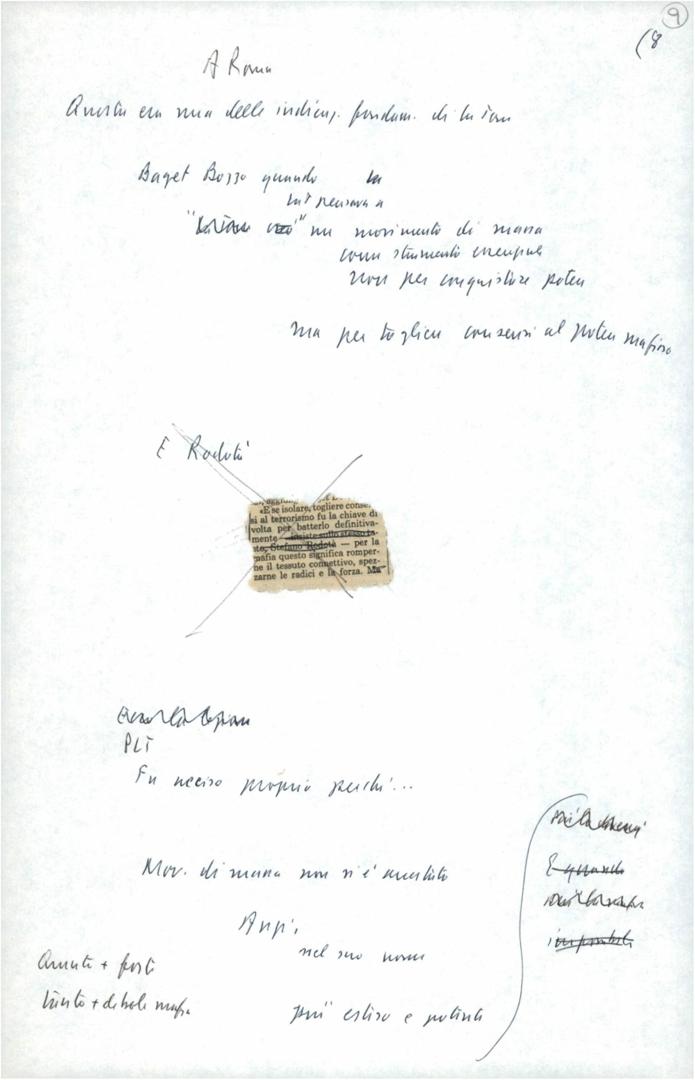 9
(8
A Roma
Questa era una delle indicaz. fondam. di La Torre
Baget Bozzo quando
lui pensava a
un movimento di massa
come strumento
non per conquistare potere
ma per togliere consensi al potere mafioso
E Rodotà
«E se isolare, togliere conse-
si al terrorismo fu la chiave di
volta per batterlo definitiva-
mente
to, Stefano Rodotà — per la
mafia questo significa romper-
ne il tessuto connettivo, spez-
zarne le radici e la forza. Ma
PLT
Fu ucciso proprio perché...
Mov. di massa non si è arrestato
Anzi,
nel suo nome
più esteso e potente
E quando
+ forti
+ debole mafia